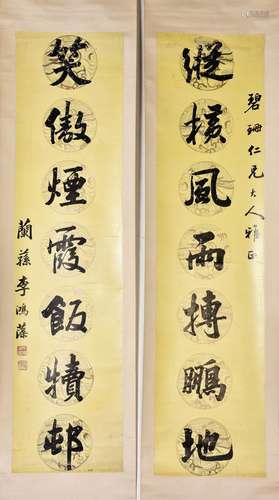 碧珊仁兄大人雅正
縱橫風雨摶鵬地
笑傲煙霞飯犢邨
蘭蓀李鴻藻